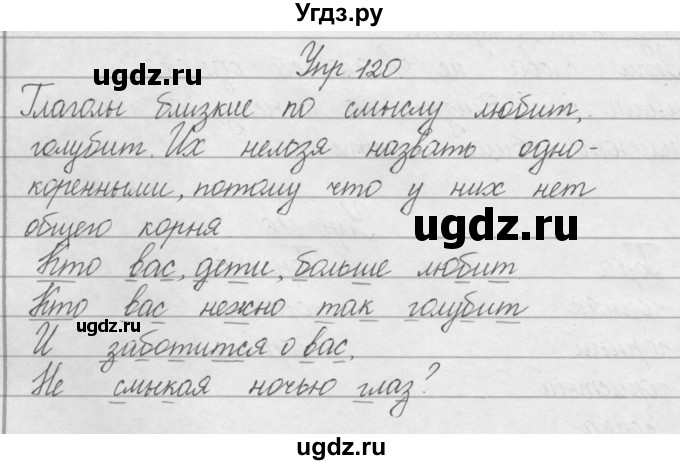 Угдз.ру
Упр. 120.
Глаголы близкие по смыслу любит,
голубит. Их нельзя назвать одно-
коренными, потому что у них нет
общего корня
Кто вас, дети, больше любит
Кто вас нежно так голубит
И заботится о вас,
Не смыкая ночью глаз?
ugdz.ru
ugdz.ru
ugdz.ru
ugdz.ru